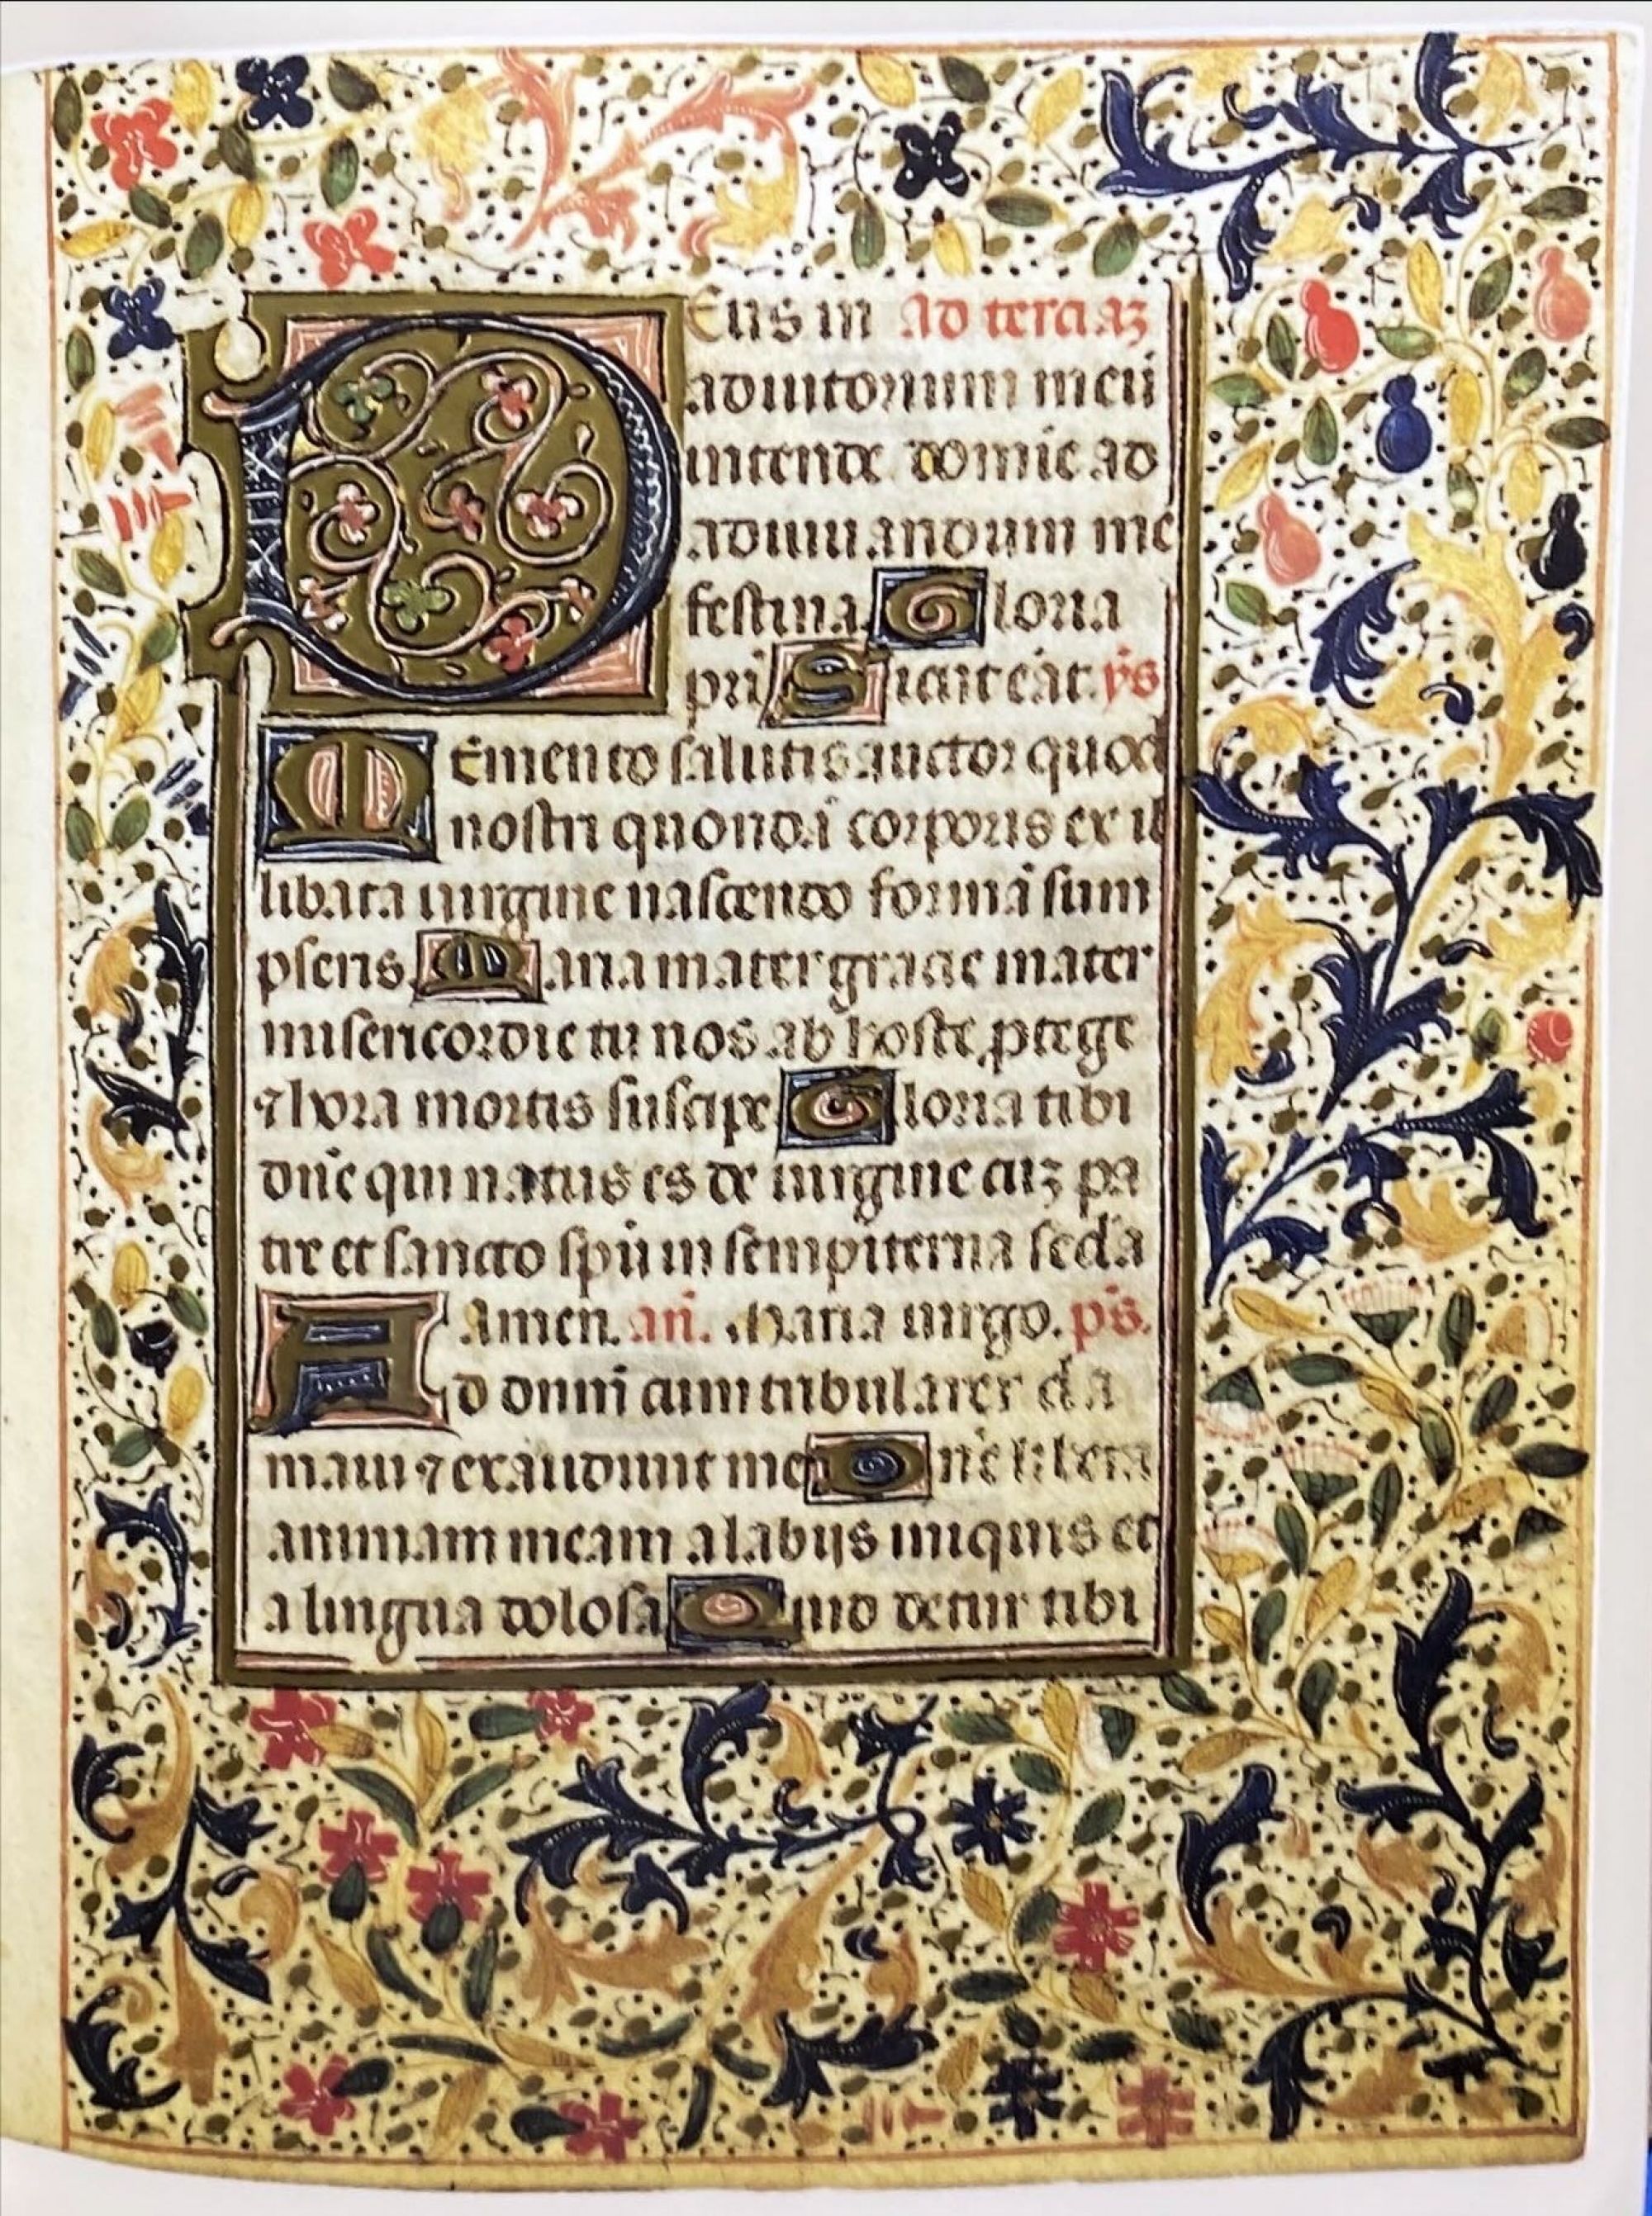 Deus in ad terciaz
adiutorium meū
intende domine ad
adiuuandum me
festina. Gloria
pri Sicut erat. ys
Memento salutis auctor quod
nostri quondā corporis ex il
libata uirgine nascendo formā sum
pseris. Maria mater gracie mater
misericordie tu nos ab hoste ptege
⁊ hora mortis suscipe Gloria tibi
dn̄e qui natus es de uirgine cuz pa
tre et sancto spū in sempiterna secla
Amen. an̄. Maria uirgo. ps̄.
Ad dominū cum tribularer cla
maui ⁊ exaudiuit me Dn̄e libera
animam meam a labijs iniquis et
a lingua dolosa Quid detur tibi